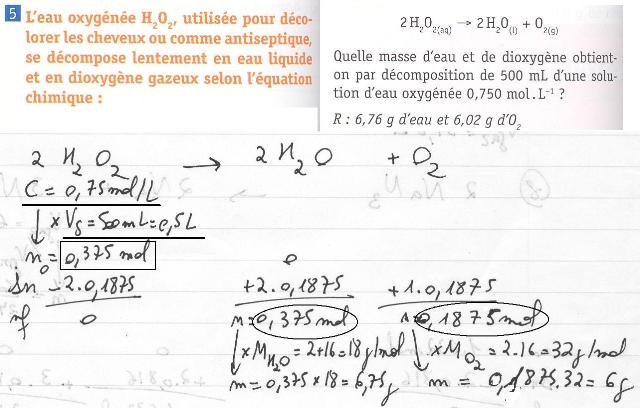 5 L'eau oxygénée H₂O₂, utilisée pour déco-
lorer les cheveux ou comme antiseptique,
se décompose lentement en eau liquide
et en dioxygène gazeux selon l'équation
chimique :
2 H₂O₂(aq) → 2 H₂O(l) + O₂(g)
Quelle masse d'eau et de dioxygène obtient-
on par décomposition de 500 mL d'une solu-
tion d'eau oxygénée 0,750 mol . L⁻¹ ?
R : 6,76 g d'eau et 6,02 g d'O₂
2 H₂O₂ → 2 H₂O + O₂
C = 0,75 mol/L
↓ × Vs = 500 mL = 0,5 L
n₀ = 0,375 mol 0
Δn - 2. 0,1875 + 2. 0,1875 + 1. 0,1875
nf 0 n = 0,375 mol n = 0,1875 mol
↓ × M H₂O = 2+16 = 18 g/mol ↓ × M O₂ = 2.16 = 32 g/mol
m = 0,375 × 18 = 6,75 g m = 0,1875.32 = 6 g